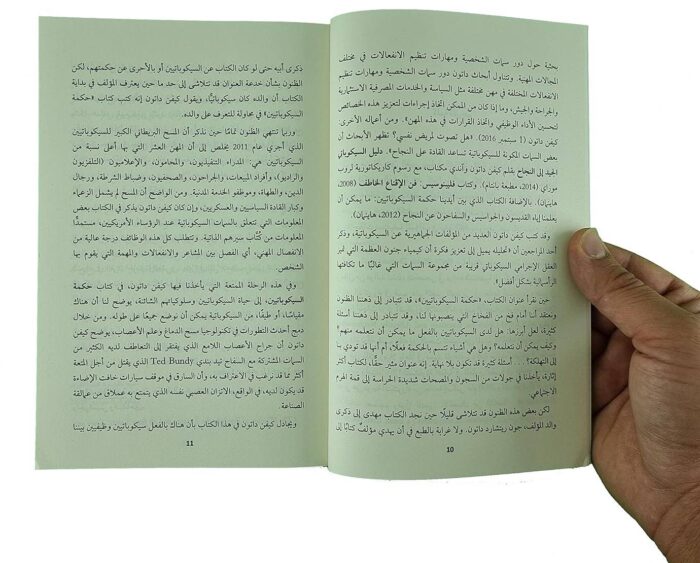 بحثية حول دور سمات الشخصية ومهارات تنظيم الانفعالات في مختلف
المجالات المهنية. وتتناول أبحاث داتون دور سمات الشخصية ومهارات تنظيم
الانفعالات المختلفة في مهن مختلفة مثل السياسة والخدمات المصرفية الاستثمارية
والجراحة والجيش، وما إذا كان من الممكن اتخاذ إجراءات لتعزيز هذه الخصائص
لتحسين الأداء الوظيفي واتخاذ القرارات في هذه المهن». ومن أعماله الأخرى.
كيفن داتون (1 سبتمبر 2016). «هل تصوت لمريض نفسي؟ تظهر الأبحاث أن
بعض السمات المكونة للسيكوباتية تساعد القادة على النجاح». دليل السيكوباتي
الجيد إلى النجاح بقلم كيفن داتون وآندي مكناب، مع رسوم كاريكاتورية لروب
موراي (2014، مطبعة بانتام). وكتاب فليبنوسيس: فن الإقناع الخاطف (2008،
هاينمان). بالإضافة الكتاب الذي بين أيدينا حكمة السيكوباتيين: ما يمكن أن
يعلمنا إياه القديسون والجواسيس والسفاحون عن النجاح (2012، هاينمان)
وقد كتب كيفن داتون العديد من المؤلفات الجماهيرية عن السيكوباتية، وذكر
أحد المراجعين أن «تحليله يميل إلى تعزيز فكرة أن كيمياء جنون العظمة التي تميز
العقل الإجرامي السيكوباتي قريبة من مجموعة السمات التي غالبًا ما تكافئها
الرأسمالية بشكل أفضل».
حين نقرأ عنوان الكتاب «حكمة السيكوباتيين»، قد تتبادر إلى ذهننا الظنون
ونعتقد أنه أمام فخ من الفخاخ التي ينصبونها لنا، وقد تتبادر إلى ذهننا أسئلة
كثيرة، لعل أبرزها: هل لدى السيكوباتيين بالفعل ما يمكن أن نتعلمه منهم؟
وكيف يمكن أن نتعلمه؟ وهل هي أشياء تتسم بالحكمة فعلًا، أم أنها قد تودي بنا
إلى التهلكة؟ ... أسئلة كثيرة قد تكون بلا نهاية. إنه عنوان مثير حقًّا، لكتاب أكثر
إثارة، يأخذنا في جولات من السجون والمصحات شديدة الحراسة إلى قمة الهرم
الاجتماعي
لكن بعض هذه الظنون قد تتلاشى قليلًا حين نجد الكتاب مهدى إلى ذكرى
والد المؤلف، جون ريتشارد داتون. ولا غرابة بالطبع في أن يهدي مؤلفٌ كتابًا إلى
10
ذكرى أبيه حتى لو كان الكتاب عن السيكوباتيين أو بالأحرى عن حكمتهم، لكن
الظنون بشأن خدعة العنوان قد تتلاشى إلى حد ما حين يعترف المؤلف في بداية
الكتاب أن والده كان سيكوباتيًّا، ويقول كيفن داتون إنه كتب كتاب «حكمة
السيكوباتيين» في محاولة للتعرف على والده.
وربما تنتهي الظنون تمامًا حين نذكر أن المسح البريطاني الكبير للسيكوباتيين
الذي أجري عام 2011 يخلص إلى أن المهن العشر التي بها أعلى نسبة من
السيكوباتيين هي: المدراء التنفيذيون، والمحامون، والإعلاميون (التلفزيون
والراديو)، وأفراد المبيعات، والجراحون، والصحفيون، وضباط الشرطة، ورجال
الدين، والطهاة، وموظفو الخدمة المدنية. ومن الواضح أن المسح لم يشمل الزعماء
وكبار القادة السياسيين والعسكريين، وإن كان كيفن داتون يذكر في الكتاب بعض
المعلومات التي تتعلق بالسمات السيكوباتية عند الرؤساء الأمريكيين، مستمدًّا
المعلومات من كُتَّاب سيرهم الذاتية. وتتطلب كل هذه الوظائف درجة عالية من
الانفصال المهني، أي الفصل بين المشاعر والانفعالات والمهمة التي يقوم بها
الشخص.
وفي هذه الرحلة الممتعة التي يأخذنا فيها كيفن داتون، في كتاب حكمة
السيكوباتيين، إلى حياة السيكوباتيين وسلوكياتهم الشائنة، يوضح لنا أن هناك
مقياسًا، أو طيفًا، من السيكوباتية يمكن أن نوضع جميعًا على طوله. ومن خلال
دمج أحدث التطورات في تكنولوجيا مسح الدماغ وعلم الأعصاب، يوضح كيفن
داتون أن جراح الأعصاب اللامع الذي يفتقر إلى التعاطف لديه الكثير من
السمات المشتركة مع السفاح تيد بندي Ted Bundy الذي يقتل من أجل المتعة
أكثر مما قد نرغب في الاعتراف به، وأن السارق في موقف سيارات خافت الإضاءة
قد يكون لديه، في الواقع، الاتزان العصبي نفسه الذي يتمتع به عملاق من عمالقة
الصناعة.
ويجادل كيفن داتون في هذا الكتاب بأن هناك بالفعل سيكوباتيين وظيفيين بيننا
11